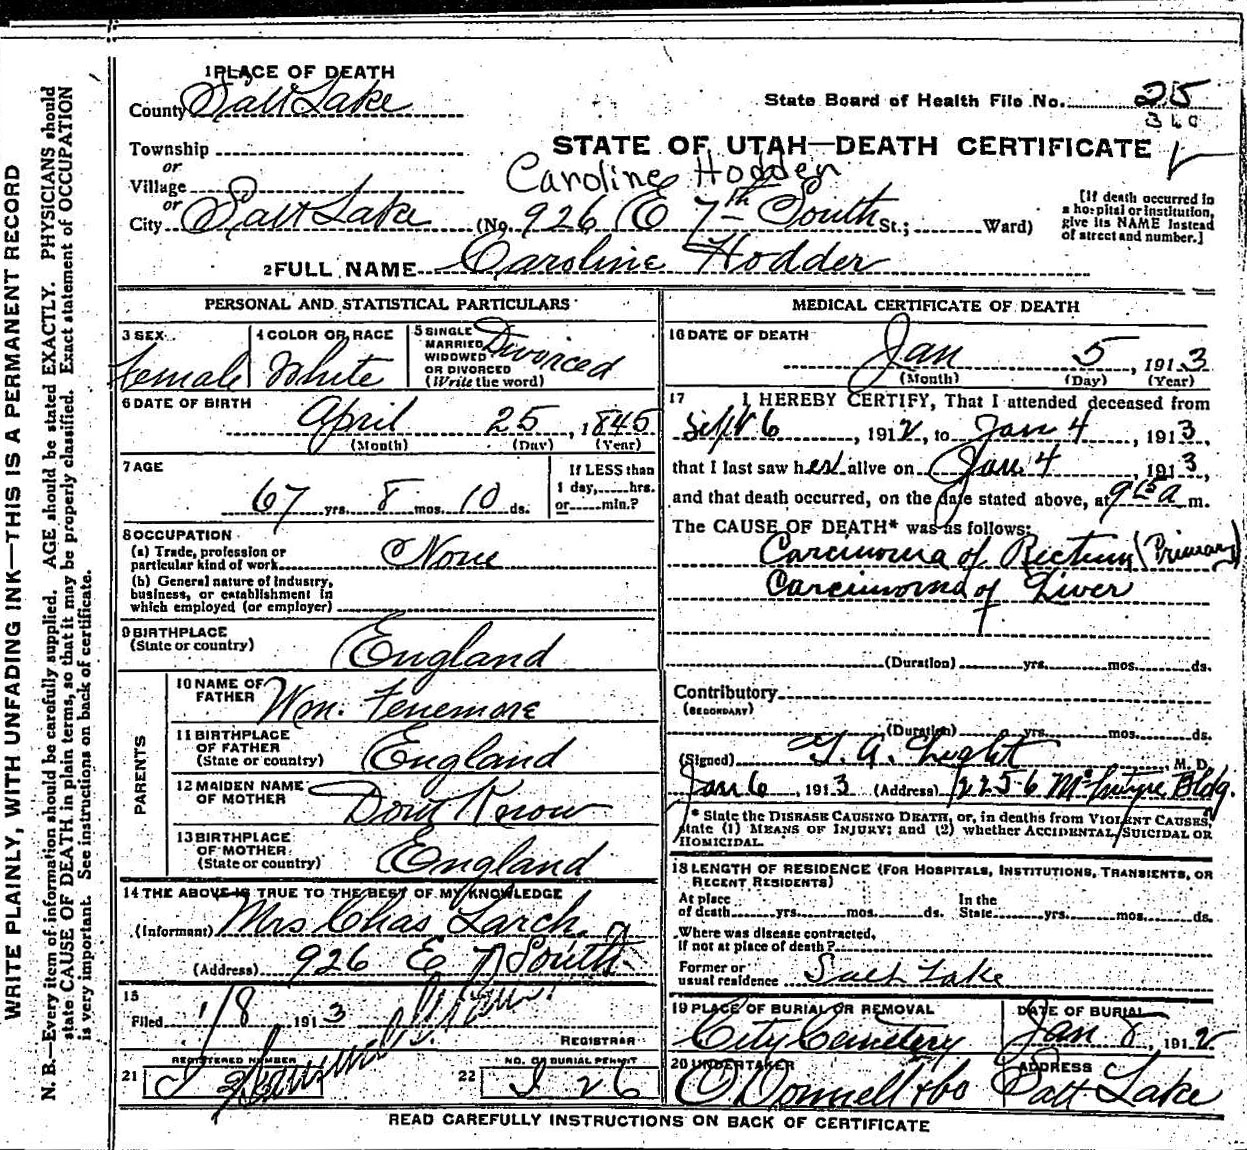 WRITE PLAINLY, WITH UNFADING INK—THIS IS A PERMANENT RECORD
N. B.—Every item of information should be carefully supplied. AGE should be stated EXACTLY. PHYSICIANS should
state CAUSE OF DEATH in plain terms, so that it may be properly classified. Exact statement of OCCUPATION
is very important. See instructions on back of certificate.
1 PLACE OF DEATH
County Salt Lake
State Board of Health File No. 25
Township
or
Village
or
City Salt Lake
STATE OF UTAH—DEATH CERTIFICATE
Caroline Hodden
(No. 926 E 7th South St.; Ward)
[If death occurred in
a hospital or institution,
give its NAME instead
of street and number.]
2 FULL NAME Caroline Hodder
PERSONAL AND STATISTICAL PARTICULARS
3 SEX Female
4 COLOR OR RACE White
5 SINGLE
MARRIED
WIDOWED
OR DIVORCED
(Write the word)
Divorced
6 DATE OF BIRTH
April 25, 1845
(Month) (Day) (Year)
7 AGE
67 yrs. 8 mos. 10 ds.
If LESS than
1 day, hrs.
or min.?
8 OCCUPATION
(a) Trade, profession or
particular kind of work None
(b) General nature of industry,
business, or establishment in
which employed (or employer)
9 BIRTHPLACE
(State or country) England
PARENTS
10 NAME OF
FATHER Wm. Fenemore
11 BIRTHPLACE
OF FATHER
(State or country) England
12 MAIDEN NAME
OF MOTHER Dont Know
13 BIRTHPLACE
OF MOTHER
(State or country) England
14 THE ABOVE IS TRUE TO THE BEST OF MY KNOWLEDGE
(Informant) Mrs Chas Larch
(Address) 926 E 7 South
15
Filed 1/8 1913
REGISTRAR
REGISTERED NUMBER
21
NO. OF BURIAL PERMIT
22 I 26
MEDICAL CERTIFICATE OF DEATH
16 DATE OF DEATH
Jan 5, 1913
(Month) (Day) (Year)
17 I HEREBY CERTIFY, That I attended deceased from
Sept 6, 1912, to Jan 4, 1913,
that I last saw her alive on Jan 4, 1913,
and that death occurred, on the date stated above, at 9 15 a m.
The CAUSE OF DEATH* was as follows:
Carcinoma of Rectum (Primary)
Carcinoma of Liver
(Duration) yrs. mos. ds.
Contributory
(SECONDARY)
(Duration) yrs. mos. ds.
(Signed) G. A. Light, M. D.
Jan 6, 1913 (Address) 1225-6 McIntyre Bldg.
* State the DISEASE CAUSING DEATH, or, in deaths from VIOLENT CAUSES,
state (1) MEANS OF INJURY; and (2) whether ACCIDENTAL, SUICIDAL OR
HOMICIDAL.
18 LENGTH OF RESIDENCE (FOR HOSPITALS, INSTITUTIONS, TRANSIENTS, OR
RECENT RESIDENTS)
At place
of death yrs. mos. ds.
In the
State yrs. mos. ds.
Where was disease contracted,
if not at place of death?
Former or
usual residence Salt Lake
19 PLACE OF BURIAL OR REMOVAL
City Cemetery
DATE OF BURIAL
Jan 8, 1912
20 UNDERTAKER
O'Donnell & Co
ADDRESS
Salt Lake
READ CAREFULLY INSTRUCTIONS ON BACK OF CERTIFICATE